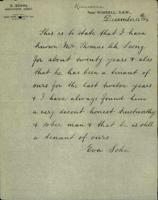 Near RUSSELL, N.S.W.
December
This is to state that I have
known Mr Thomas Ah Song
for about twenty years & also
that he has been a tenant of
ours for the last twelve years
& I have always found him
a very decent honest trustworthy
& sober man & that he is still
a tenant of ours